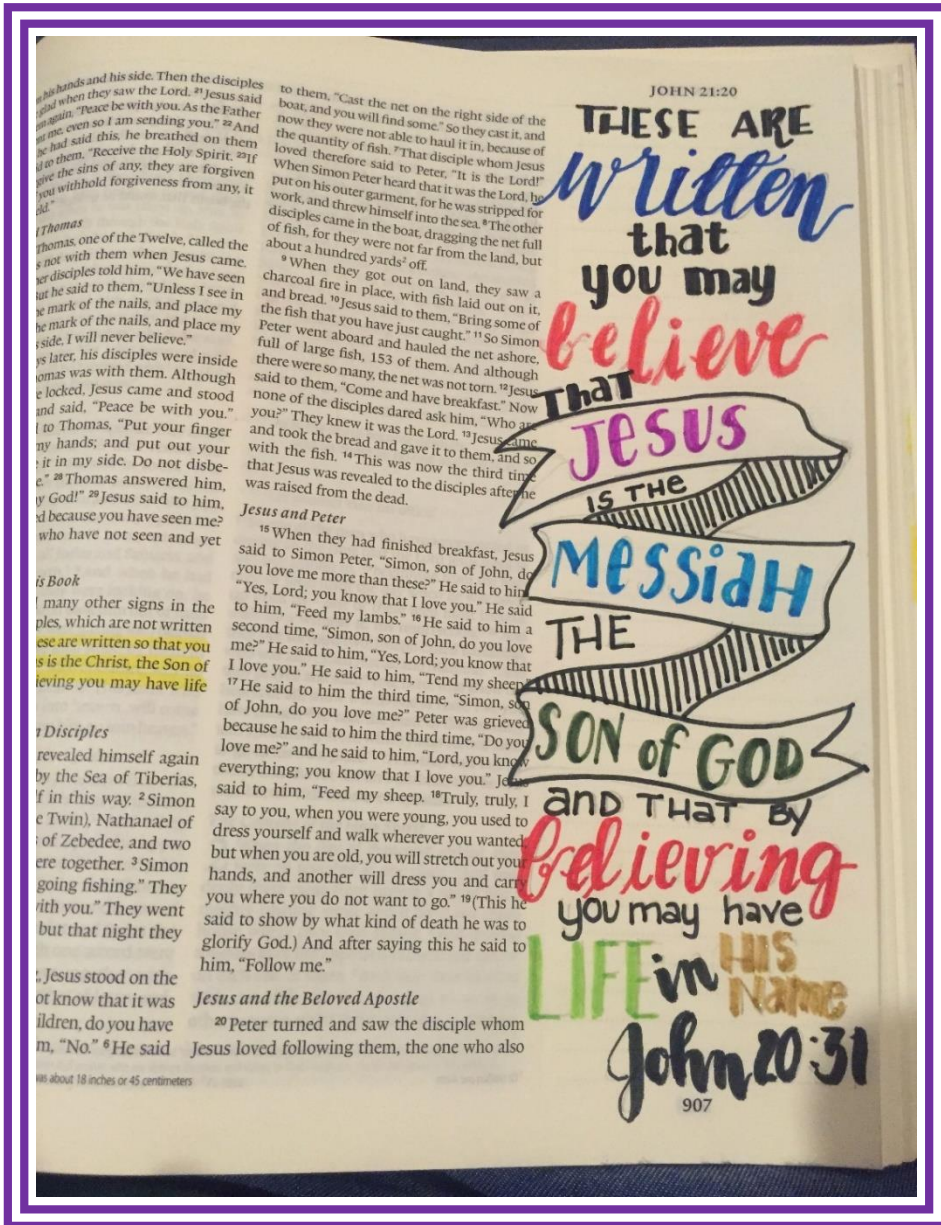 his hands and his side. Then the disciples
glad when they saw the Lord. 21 Jesus said
again, "Peace be with you. As the Father
me, even so I am sending you." 22 And
he had said this, he breathed on them
to them, "Receive the Holy Spirit. 23 If
give the sins of any, they are forgiven
you withhold forgiveness from any, it
eld."
Thomas
Thomas, one of the Twelve, called the
s not with them when Jesus came.
er disciples told him, "We have seen
ut he said to them, "Unless I see in
e mark of the nails, and place my
he mark of the nails, and place my
side, I will never believe."
ys later, his disciples were inside
omas was with them. Although
e locked, Jesus came and stood
and said, "Peace be with you."
to Thomas, "Put your finger
my hands; and put out your
it in my side. Do not disbe-
e." 28 Thomas answered him,
y God!" 29 Jesus said to him,
d because you have seen me?
who have not seen and yet
is Book
many other signs in the
ples, which are not written
ese are written so that you
s is the Christ, the Son of
ieving you may have life
Disciples
revealed himself again
by the Sea of Tiberias,
f in this way. 2 Simon
e Twin), Nathanael of
of Zebedee, and two
ere together. 3 Simon
going fishing." They
with you." They went
but that night they
Jesus stood on the
ot know that it was
ildren, do you have
m, "No." 6 He said
was about 18 inches or 45 centimeters
to them, "Cast the net on the right side of the
boat, and you will find some." So they cast it, and
now they were not able to haul it in, because of
the quantity of fish. 7 That disciple whom Jesus
loved therefore said to Peter, "It is the Lord!"
When Simon Peter heard that it was the Lord, he
put on his outer garment, for he was stripped for
work, and threw himself into the sea. 8 The other
disciples came in the boat, dragging the net full
of fish, for they were not far from the land, but
about a hundred yards2 off.
9 When they got out on land, they saw a
charcoal fire in place, with fish laid out on it,
and bread. 10 Jesus said to them, "Bring some of
the fish that you have just caught." 11 So Simon
Peter went aboard and hauled the net ashore,
full of large fish, 153 of them. And although
there were so many, the net was not torn. 12 Jesus
said to them, "Come and have breakfast." Now
none of the disciples dared ask him, "Who are
you?" They knew it was the Lord. 13 Jesus came
and took the bread and gave it to them, and so
with the fish. 14 This was now the third time
that Jesus was revealed to the disciples after he
was raised from the dead.
Jesus and Peter
15 When they had finished breakfast, Jesus
said to Simon Peter, "Simon, son of John, do
you love me more than these?" He said to him,
"Yes, Lord; you know that I love you." He said
to him, "Feed my lambs." 16 He said to him a
second time, "Simon, son of John, do you love
me?" He said to him, "Yes, Lord; you know that
I love you." He said to him, "Tend my sheep."
17 He said to him the third time, "Simon, son
of John, do you love me?" Peter was grieved
because he said to him the third time, "Do you
love me?" and he said to him, "Lord, you know
everything; you know that I love you." Jesus
said to him, "Feed my sheep. 18 Truly, truly, I
say to you, when you were young, you used to
dress yourself and walk wherever you wanted,
but when you are old, you will stretch out your
hands, and another will dress you and carry
you where you do not want to go." 19 (This he
said to show by what kind of death he was to
glorify God.) And after saying this he said to
him, "Follow me."
Jesus and the Beloved Apostle
20 Peter turned and saw the disciple whom
Jesus loved following them, the one who also
JOHN 21:20
THESE ARE
written
that
you may
believe
THAT
JESUS
IS THE
MESSIAH
THE
SON of GOD
AND THAT BY
believing
you may have
LIFE in HIS
NAME
John 20:31
907